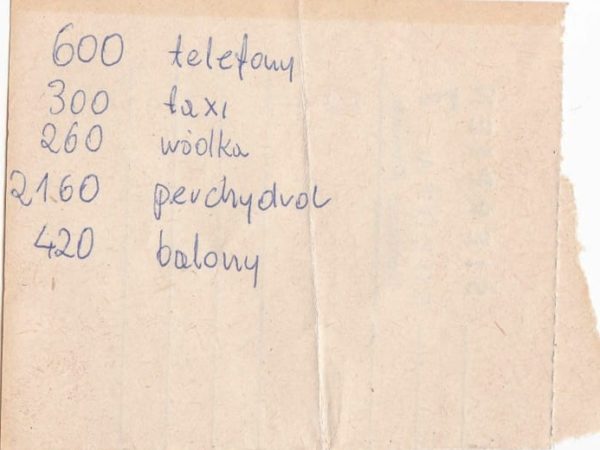 600 telefony
300 taxi
260 wódka
2160 perhydrol
420 balony